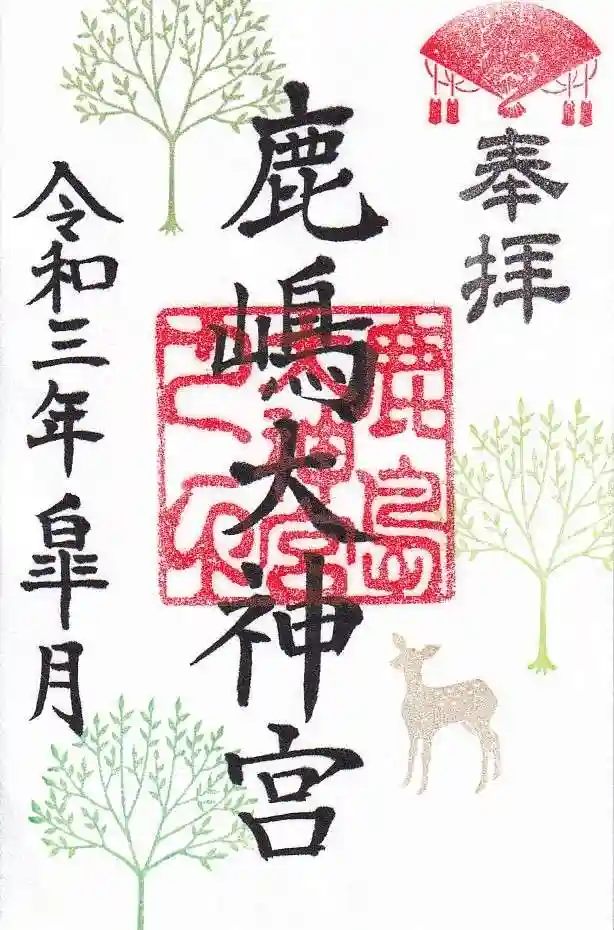 奉拝
鹿嶋大神宮
鹿島
神宮
令和三年皐月